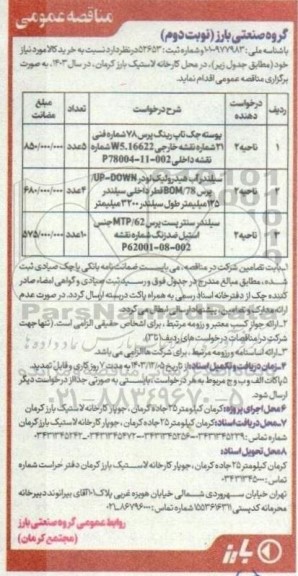 مناقصه عمومی
گروه صنعتی بارز (نوبت دوم)
باشناسه ملی: ۱۰۱۰۰۹۷۷۹۸۳ و شماره ثبت: ۵۲۶۵۳ در نظر دارد نسبت به خرید کالا مورد نیاز
خود (مطابق جدول زیر)، در محل کارخانه لاستیک بارز کرمان، در سال ۱۴۰۳، به صورت
برگزاری مناقصه عمومی اقدام نماید.
ردیف درخواست دهنده شرح درخواست تعداد مبلغ ضمانت
۱ ناحیه ۲ پوسته جک تاپ رینگ پرس ۷۸ شماره فنی
۲۱ شماره نقشه خارجی W5.16622 شماره
نقشه داخلی P78004-11-002 ۵ عدد ۸۵۰/۰۰۰/۰۰۰
۲ ناحیه ۲ سیلندر آب هیدرولیک لودر UP-DOWN
پرس BOM/78 قطر داخلی سیلندر
۱۲۵ میلیمتر طول سیلندر ۳۲۰۰ میلیمتر ۴ عدد ۶۸۰/۰۰۰/۰۰۰
۳ ناحیه ۲ سیلندر سنتر پست پرس MTP/62 جنس
استیل ضد زنگ شماره نقشه
P62001-08-002 ۱۰ عدد ۵۷۵/۰۰۰/۰۰۰
۱. بابت تضامین شرکت در مناقصه، می بایست ضمانتنامه بانکی یا چک صیادی ثبت
شده، مطابق مبالغ مندرج در جدول فوق و رسید ثبت صیادی و گواهی امضاء صادر
کننده چک از دفترخانه اسناد رسمی به همراه پاکت دربسته ارسال گردد. در صورت عدم
ارائه مدارک و تضامین، پیشنهاد ارسالی ابطال می گردد.
۲. ارائه جواز کسب معتبر و رزومه مرتبط، برای اشخاص حقیقی الزامی است. (تنها جهت
شرکت در مناقصات درخواست های ردیف
۳. ارائه اساسنامه و رزومه مرتبط، برای شرکت ها الزامی می باشد.
۴. زمان دریافت و تکمیل اسناد: از تاریخ
۵. پاکات الف و ب و ج مربوط به هر درخواست، بایستی به صورت جدا از درخواست دیگر
ارسال شود.
۶. محل اجرای پروژه: کرمان کیلومتر ۲۵ جاده کرمان، جوپار کارخانه لاستیک بارز کرمان
۷. محل دریافت اسناد: کرمان کیلومتر ۲۵ جاده کرمان، جوپار کارخانه لاستیک بارز کرمان
شماره تماس:
۸. محل تحویل اسناد:
کرمان کیلومتر ۲۵ جاده کرمان، جوپار کارخانه لاستیک بارز کرمان دفتر حراست شماره
تماس:
تهران خیابان سهروردی شمالی خیابان هویزه غربی پلاک ۱۰۱ آقای بیرانوند دبیرخانه
محرمانه کدپستی ۱۵۵۳۶۱۶۳۱۱ شماره تماس:
روابط عمومی گروه صنعتی بارز
(مجتمع کرمان)
بارز
ParsNamadData
۰۲۱-۸۸۳۴۹۶۷۰-۵